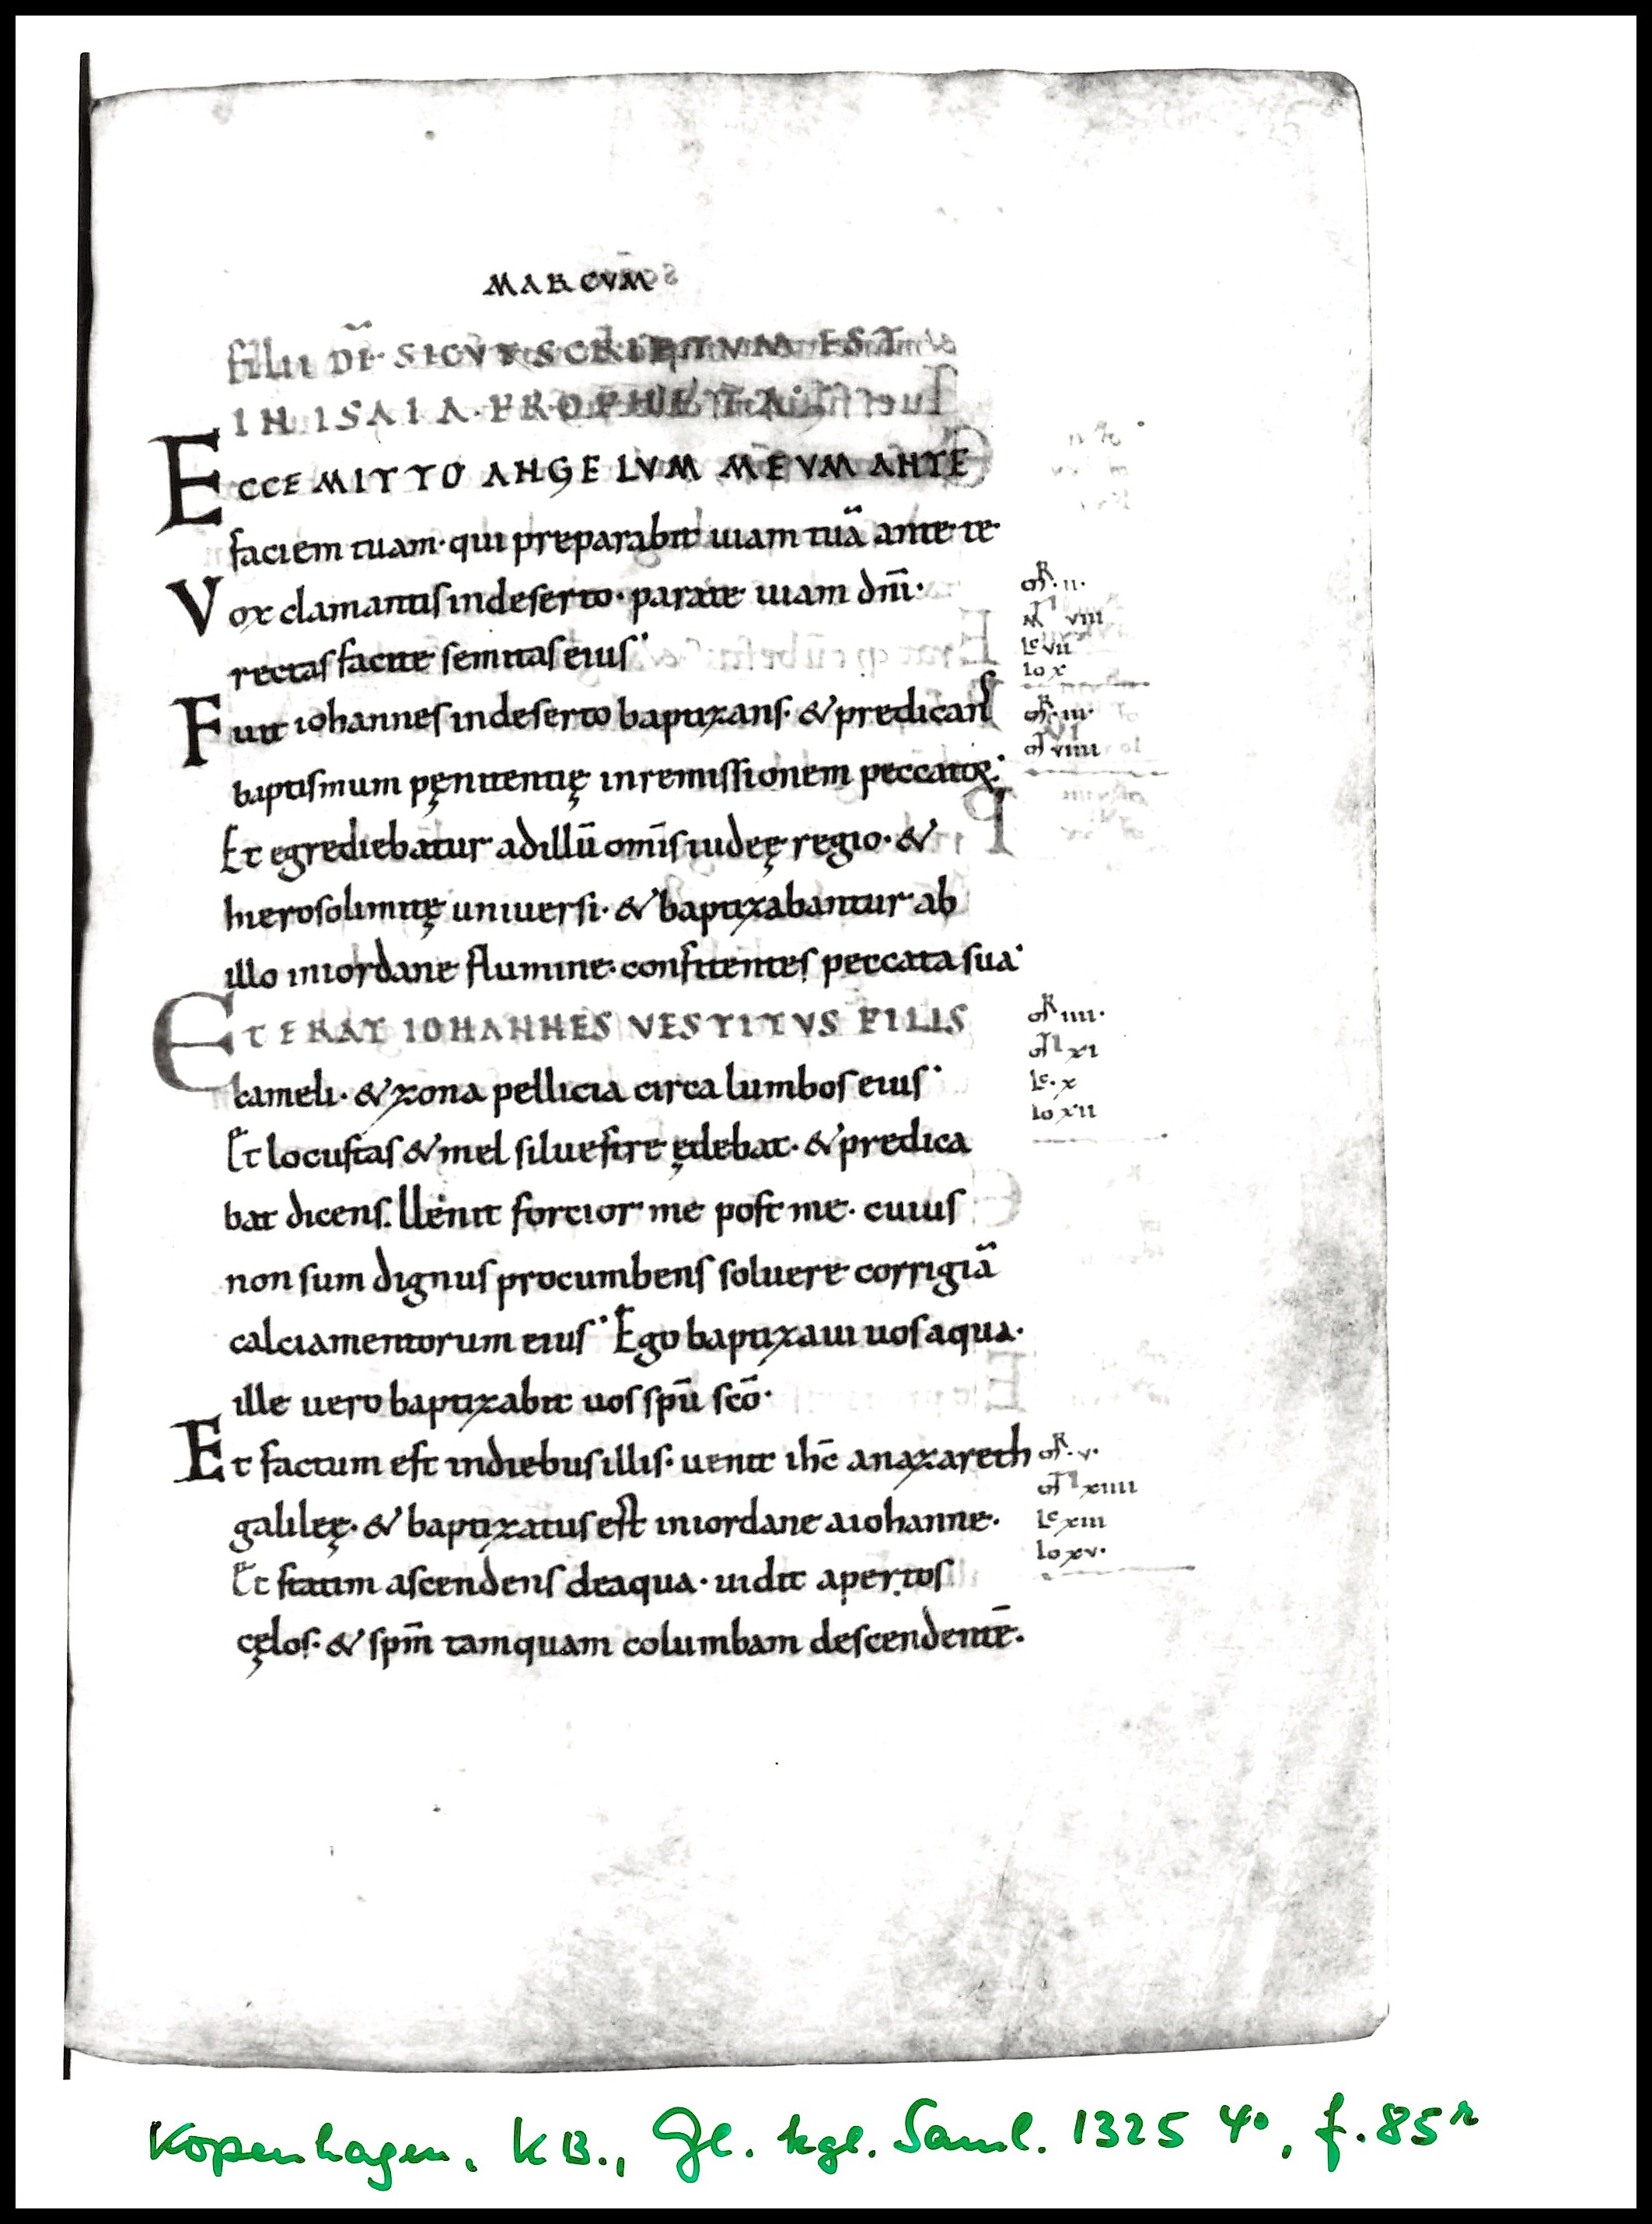 MARCVM
filii dī· SICVT SCRIPTVM EST
IN ISAIA· PROPHETA·
ECCE MITTO ANGELVM MEVM ANTE
faciem tuam· qui preparabit uiam tuā ante te·
Vox clamantis in deserto· parate uiam dn̄i·
rectas facite semitas eius·
Fuit iohannes in deserto baptizans· & predicans
baptismum pęnitentię in remissionem peccatoꝝ·
Et egrediebatur ad illū om̄is iudeę regio· &
hierosolimitę uniuersi· & baptizabantur ab
illo in iordane flumine· confitentes peccata sua·
ET ERAT IOHANNES VESTITVS PILIS
cameli· & zona pellicia circa lumbos eius·
Et locustas & mel siluestre ędebat· & predica
bat dicens. Uenit forcior me post me· cuius
non sum dignus procumbens soluere corrigiā
calciamentorum eius· Ego baptizaui uos aqua·
ille uero baptizabit uos spū scō·
Et factum est in diebus illis· uenit ih̄c a nazareth
galileę· & baptizatus est in iordane a iohanne·
Et statim ascendens de aqua· uidit apertos
cęlos· & spm̄ tamquam columbam descendentē·
mR·ii·
MT viii
lc vii
io x
mR·iii·
mT viiii
mR iiii·
mT xi
lc·x
io xii
mR·v·
mT xiiii
lc xiii
io xv·
Kopenhagen, KB., Gl. kgl. Saml. 1325 4°, f. 85r